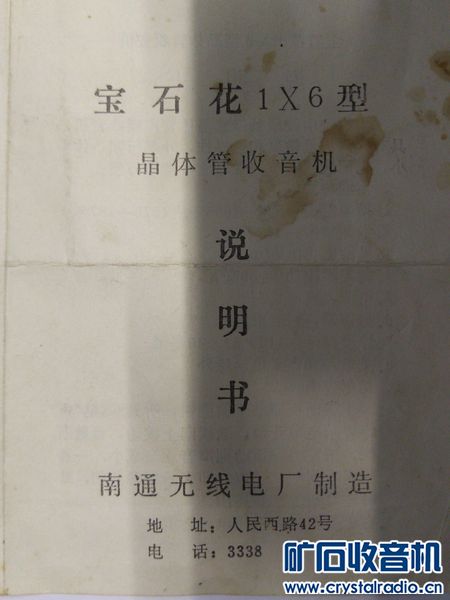 宝石花1X6型
晶体管收音机
说
明
书
南通无线电厂制造
地 址：人民西路42号
电 话：3338
矿石收音机
www.crystalradio.cn